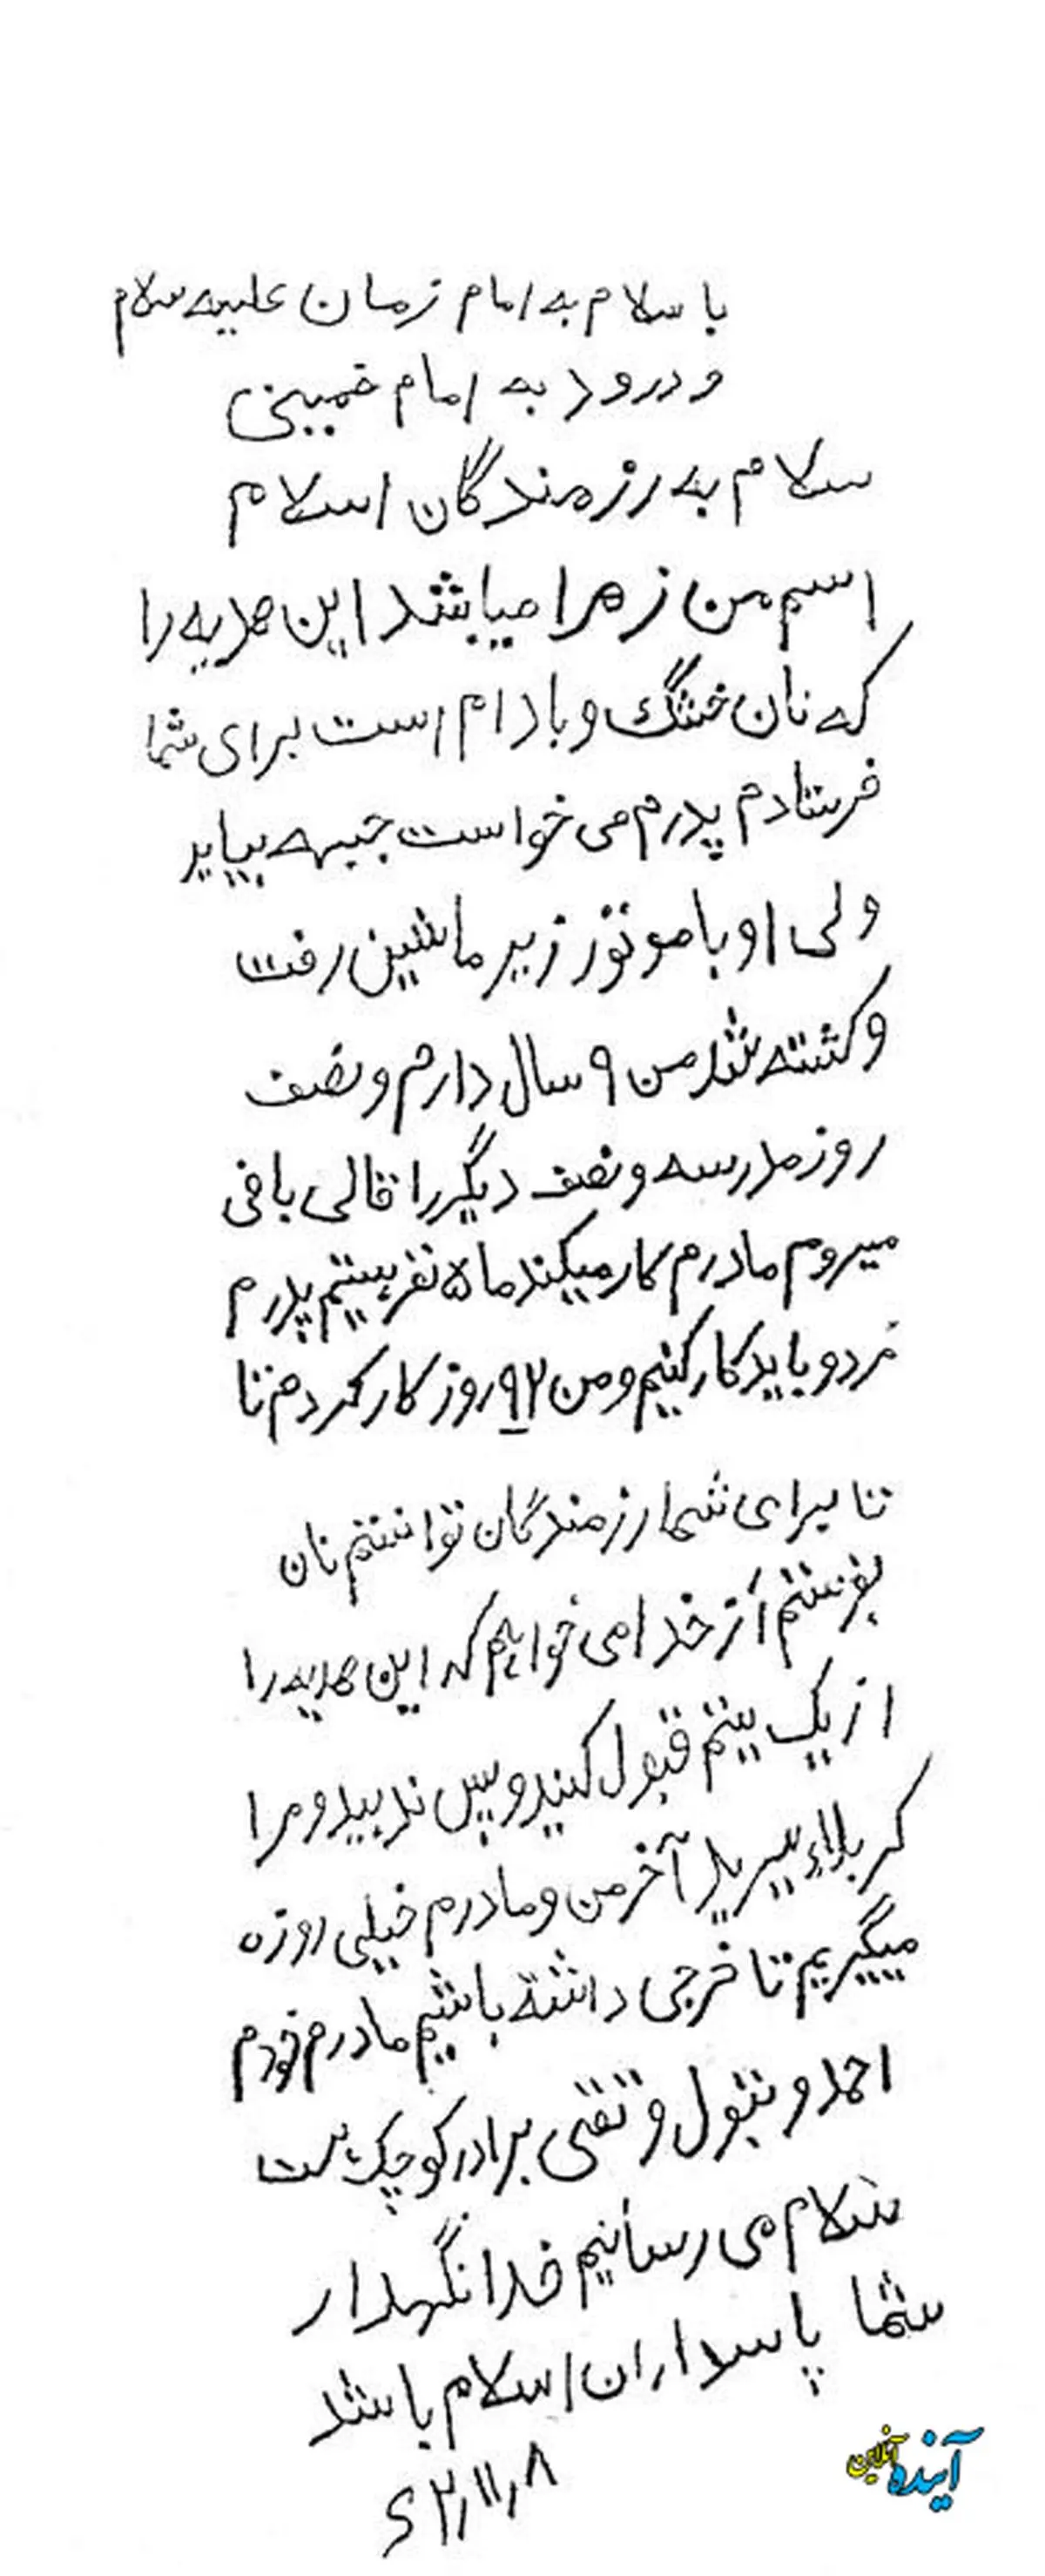 با سلام به امام زمان علیه سلام
و درود به امام خمینی
سلام به رزمندگان اسلام
اسم من زهرا میباشد این هدیه را
که نان خشگ و بادام است برای شما
فرستادم پدرم می خواست جبهه بیاید
ولی او با موتوز زیر ماشین رفت
و کشته شد من ۹ سال دارم و نصف
روز مدرسه و نصف دیگر را قالی بافی
میروم مادرم کار میکند ما ۵ نفر هستیم پدرم
مرد و باید کار کنیم و من ۹۲ روز کار کردم تا
تا برای شما رزمندگان توانستم نان
بفرستم از خدا می خواهم که این هدیه را
از یک یتم قبول کنید و پس ندهید و مرا
کربلاء ببرید آخر من و مادرم خیلی روزه
میگیریم تا خرجی داشتة باشیم مادرم خودم
احمد و بتول و تقی برادر کوچک است
سلام می رسانیم خدا نگهدار
شما پاسداران اسلام باشد
۶۲٫۱۱٫۸
آینده آنلاین